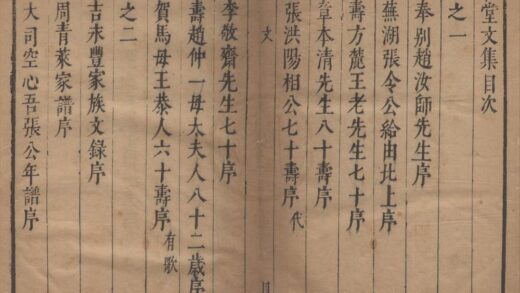 堂文集目次
之一
奉别趙汝師先生序
蕪湖張令公給由北上序
壽方麓王老先生七十序
章本清先生八十壽序
張洪陽相公七十壽序代
文
李敬齋先生七十序
壽趙仲一母太夫人八十二歲序
賀馬母王恭人六十壽序有歌
之二
吉永豐家族文錄序
周青萊家譜序
大司空心吾張公年譜序